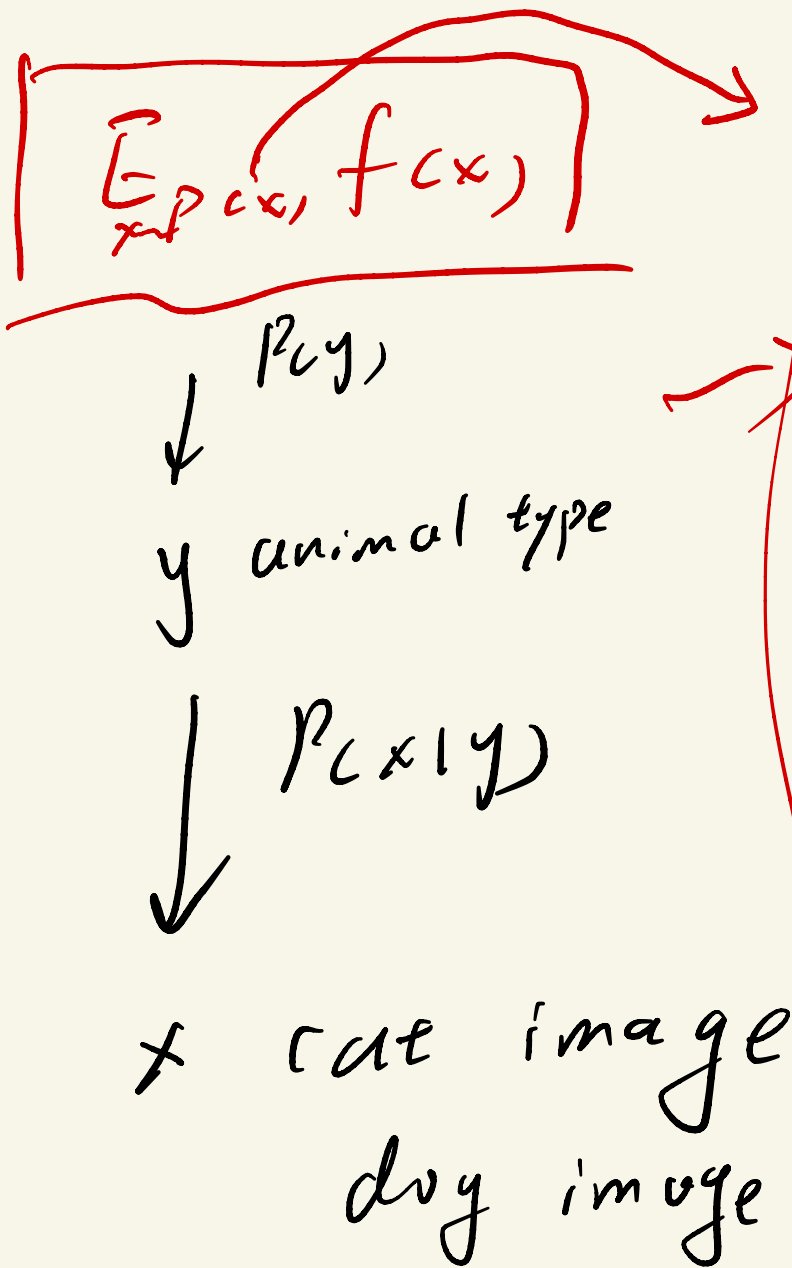 E x~p(x) f(x)
P(y)
y animal type
P(x|y)
x cat image
dog image